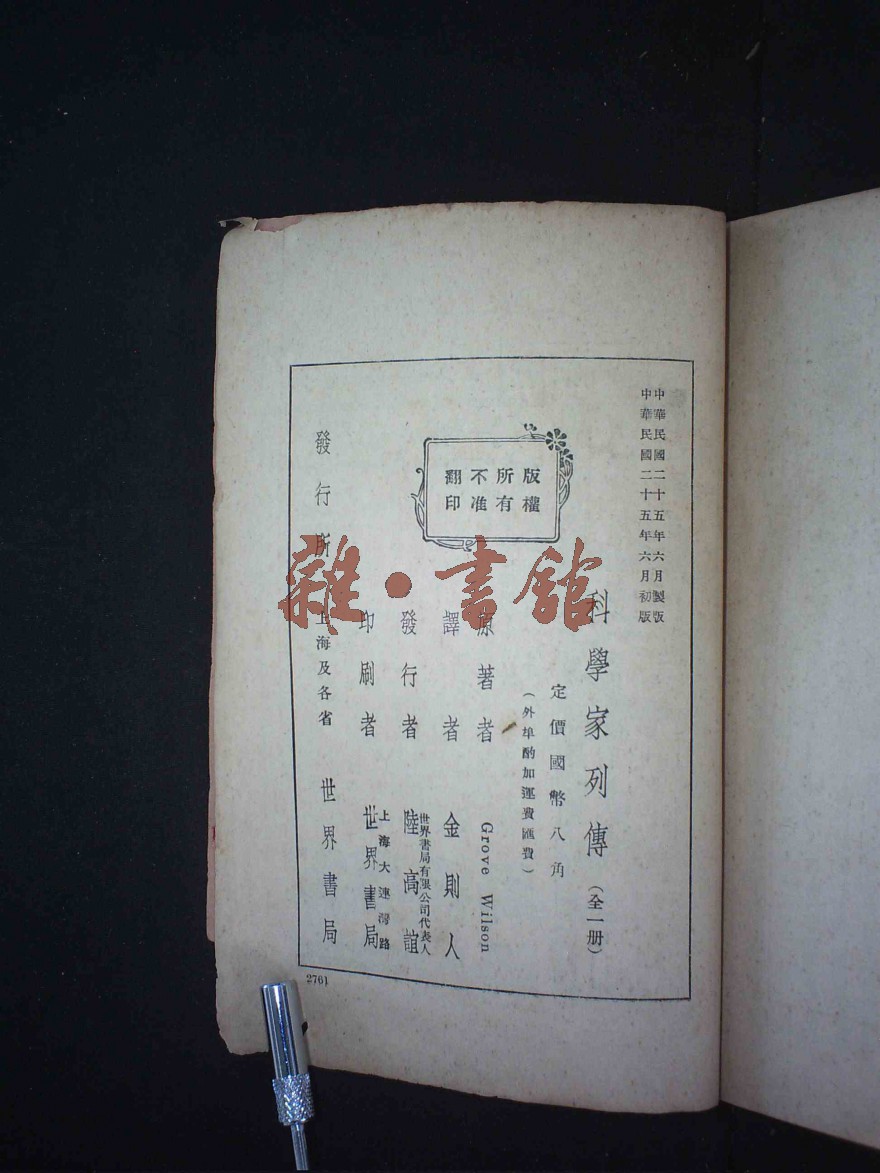 中華民國二十五年六月製版
中華民國二十五年六月初版
科學家列傳（全一册）
定價國幣八角
（外埠酌加運費匯費）
版權
所有
不准
翻印
原著者 Grove Wilson
譯者 金則人
發行者 世界書局有限公司代表人 陸高誼
印刷者 上海大連灣路 世界書局
發行所 上海及各省 世界書局
2761
雜·書館